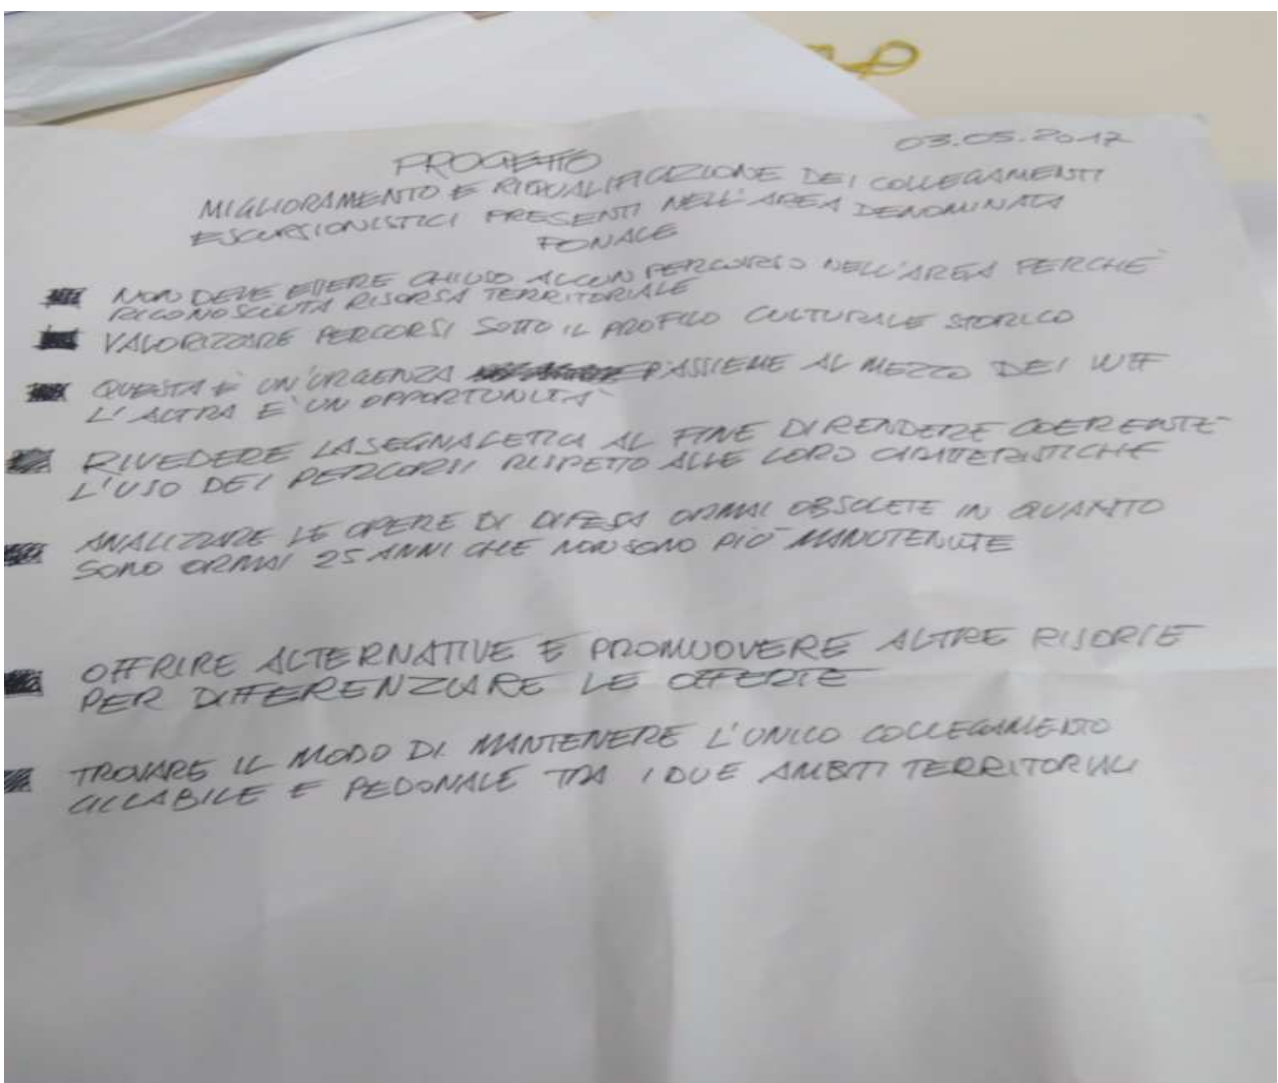 03.05.2017
PROGETTO
MIGLIORAMENTO E RIQUALIFICAZIONE DEI COLLEGAMENTI
ESCURSIONISTICI PRESENTI NELL'AREA DENOMINATA
FONALE
NON DEVE ESSERE CHIUSO ALCUN PERCORSO NELL'AREA PERCHÈ
RICONOSCIUTA RISORSA TERRITORIALE
VALORIZZARE PERCORSI SOTTO IL PROFILO CULTURALE STORICO
QUESTA È UN'URGENZA ASSIEME AL MEZZO DEI
L'ALTRA E' UN OPPORTUNITA'
RIVEDERE LA SEGNALETICA AL FINE DI RENDERE COERENTE
L'USO DEI PERCORSI RISPETTO ALLE LORO CARATTERISTICHE
ANALIZZARE LE OPERE DI DIFESA ORMAI OBSOLETE IN QUANTO
SONO ORMAI 25 ANNI CHE NON SONO PIÙ MANUTENUTE
OFFRIRE ALTERNATIVE E PROMUOVERE ALTRE RISORSE
PER DIFFERENZIARE LE OFFERTE
TROVARE IL MODO DI MANTENERE L'UNICO COLLEGAMENTO
CICLABILE E PEDONALE TRA I DUE AMBITI TERRITORIALI